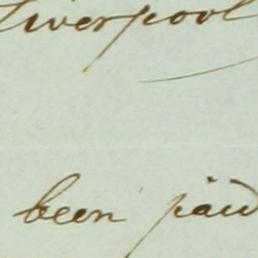 Liverpool
been paid